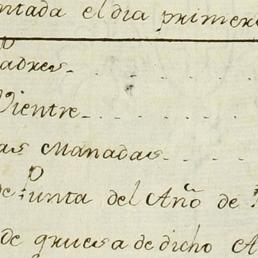 ntada el dia primero
Padres
Vientre
as Manadas
de Punta del Año de
de gruesa de dicho A